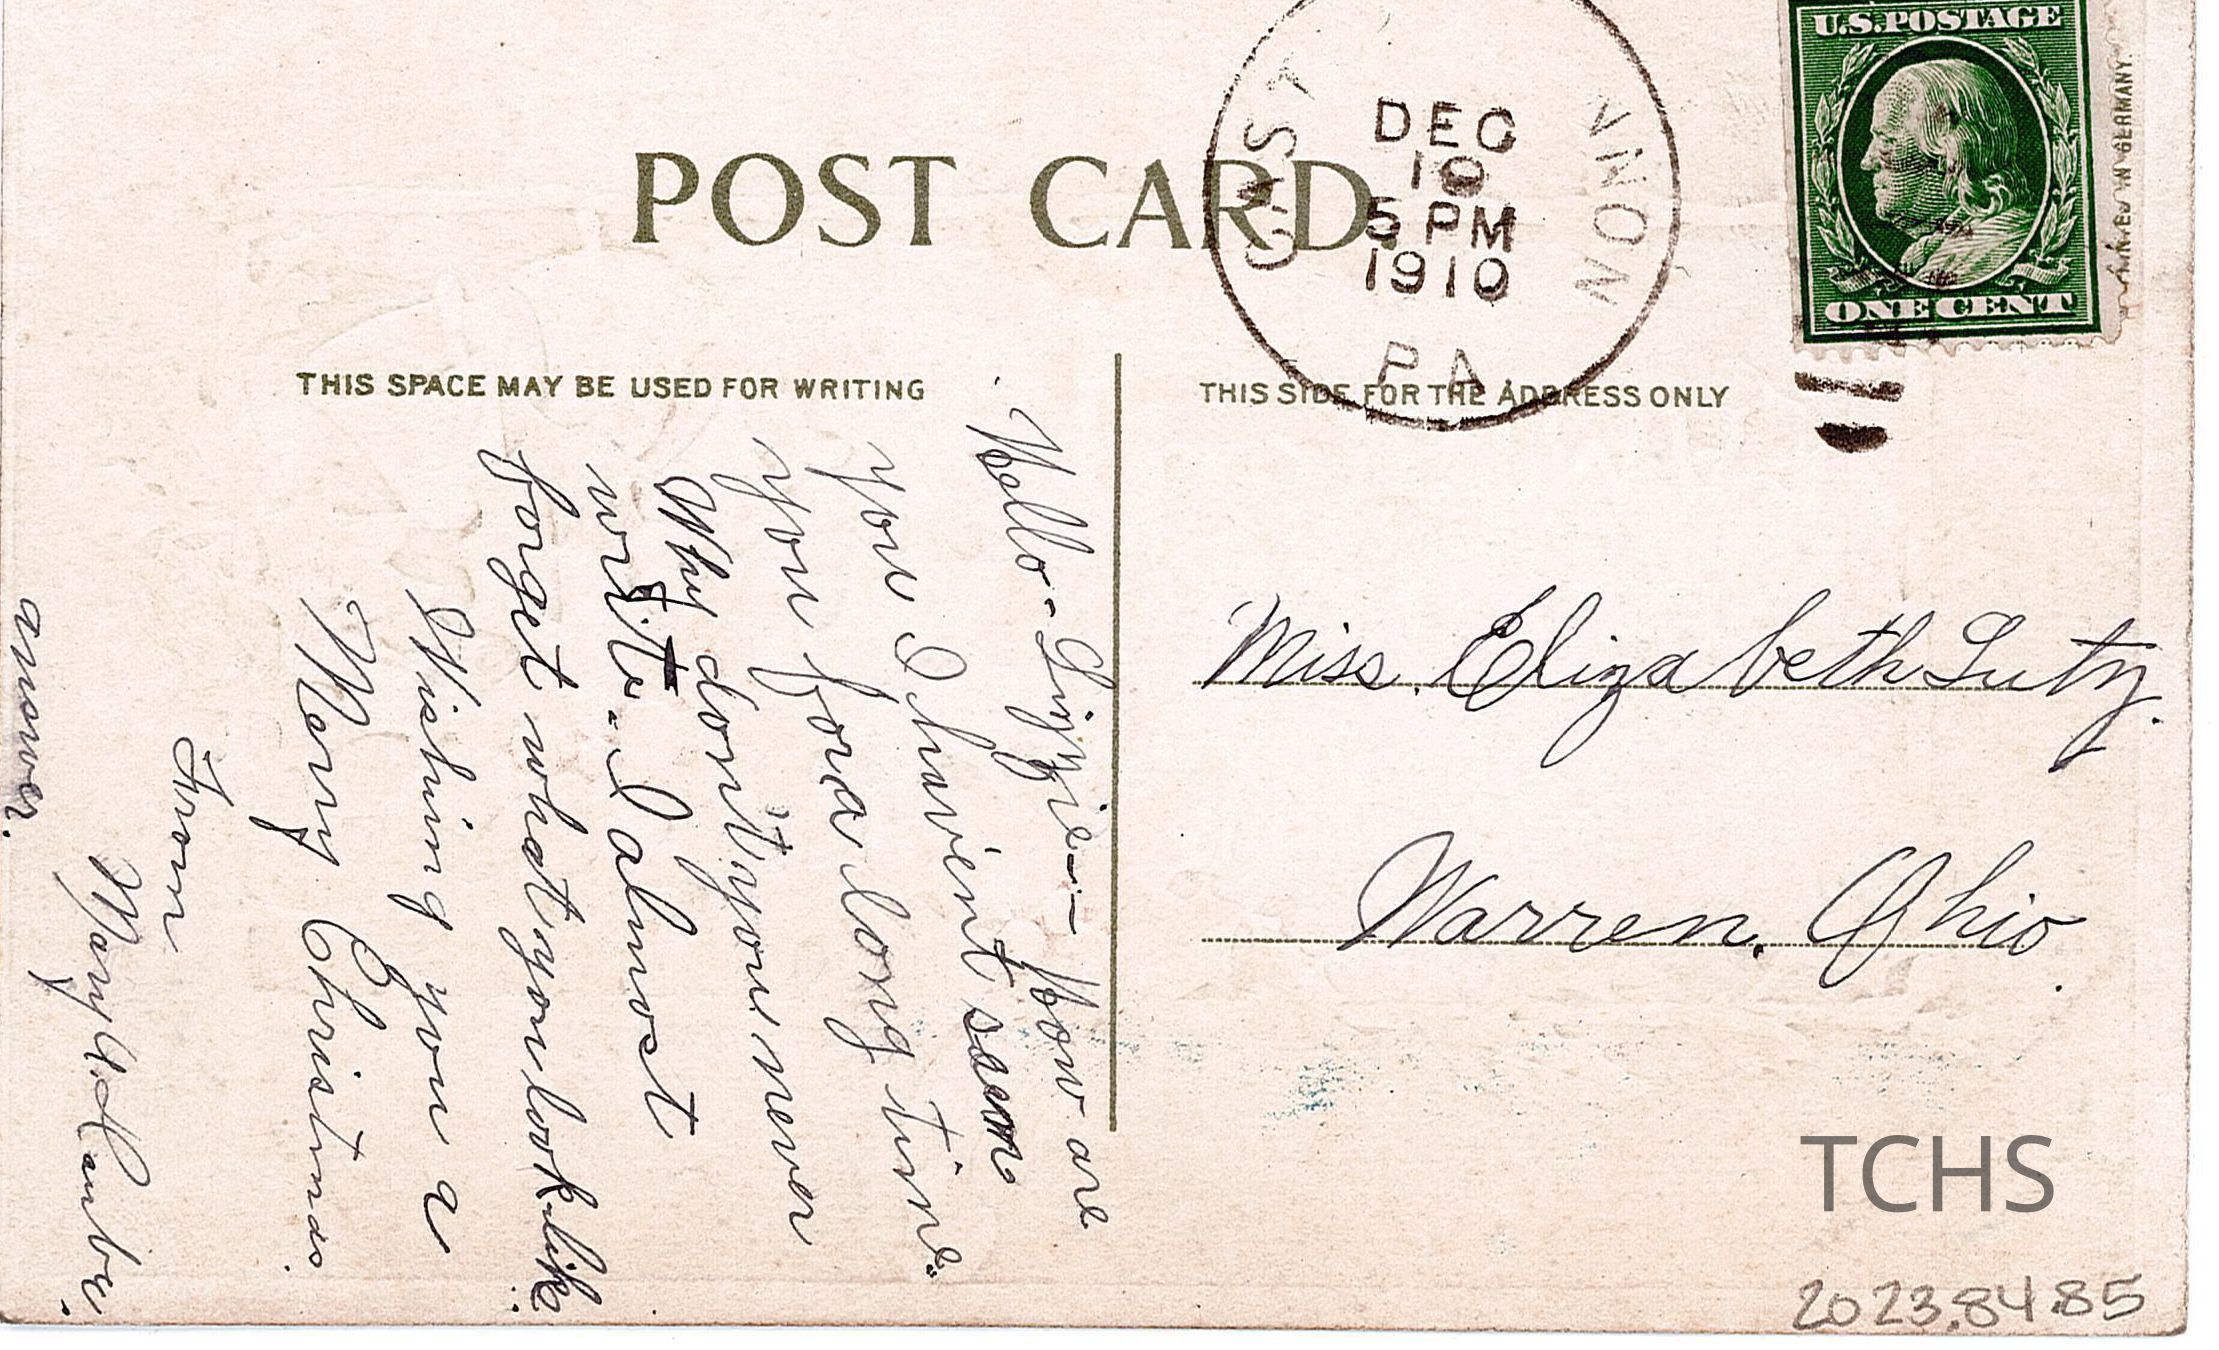 U.S. POSTAGE
ONE CENT
PRINTED IN GERMANY.
POST CARD
DEC
10
5 PM
1910
PA
THIS SPACE MAY BE USED FOR WRITING
THIS SIDE FOR THE ADDRESS ONLY
Hello - Lizzie - - How are
you I havent seen
you for a long time.
Why don't you never
write. I almost
forget what you look like
Wishing you a
Merry Christmas.
From
Mary A.
answer.
Miss. Elizabeth Luty.
Warren. Ohio.
TCHS
2023.84.85